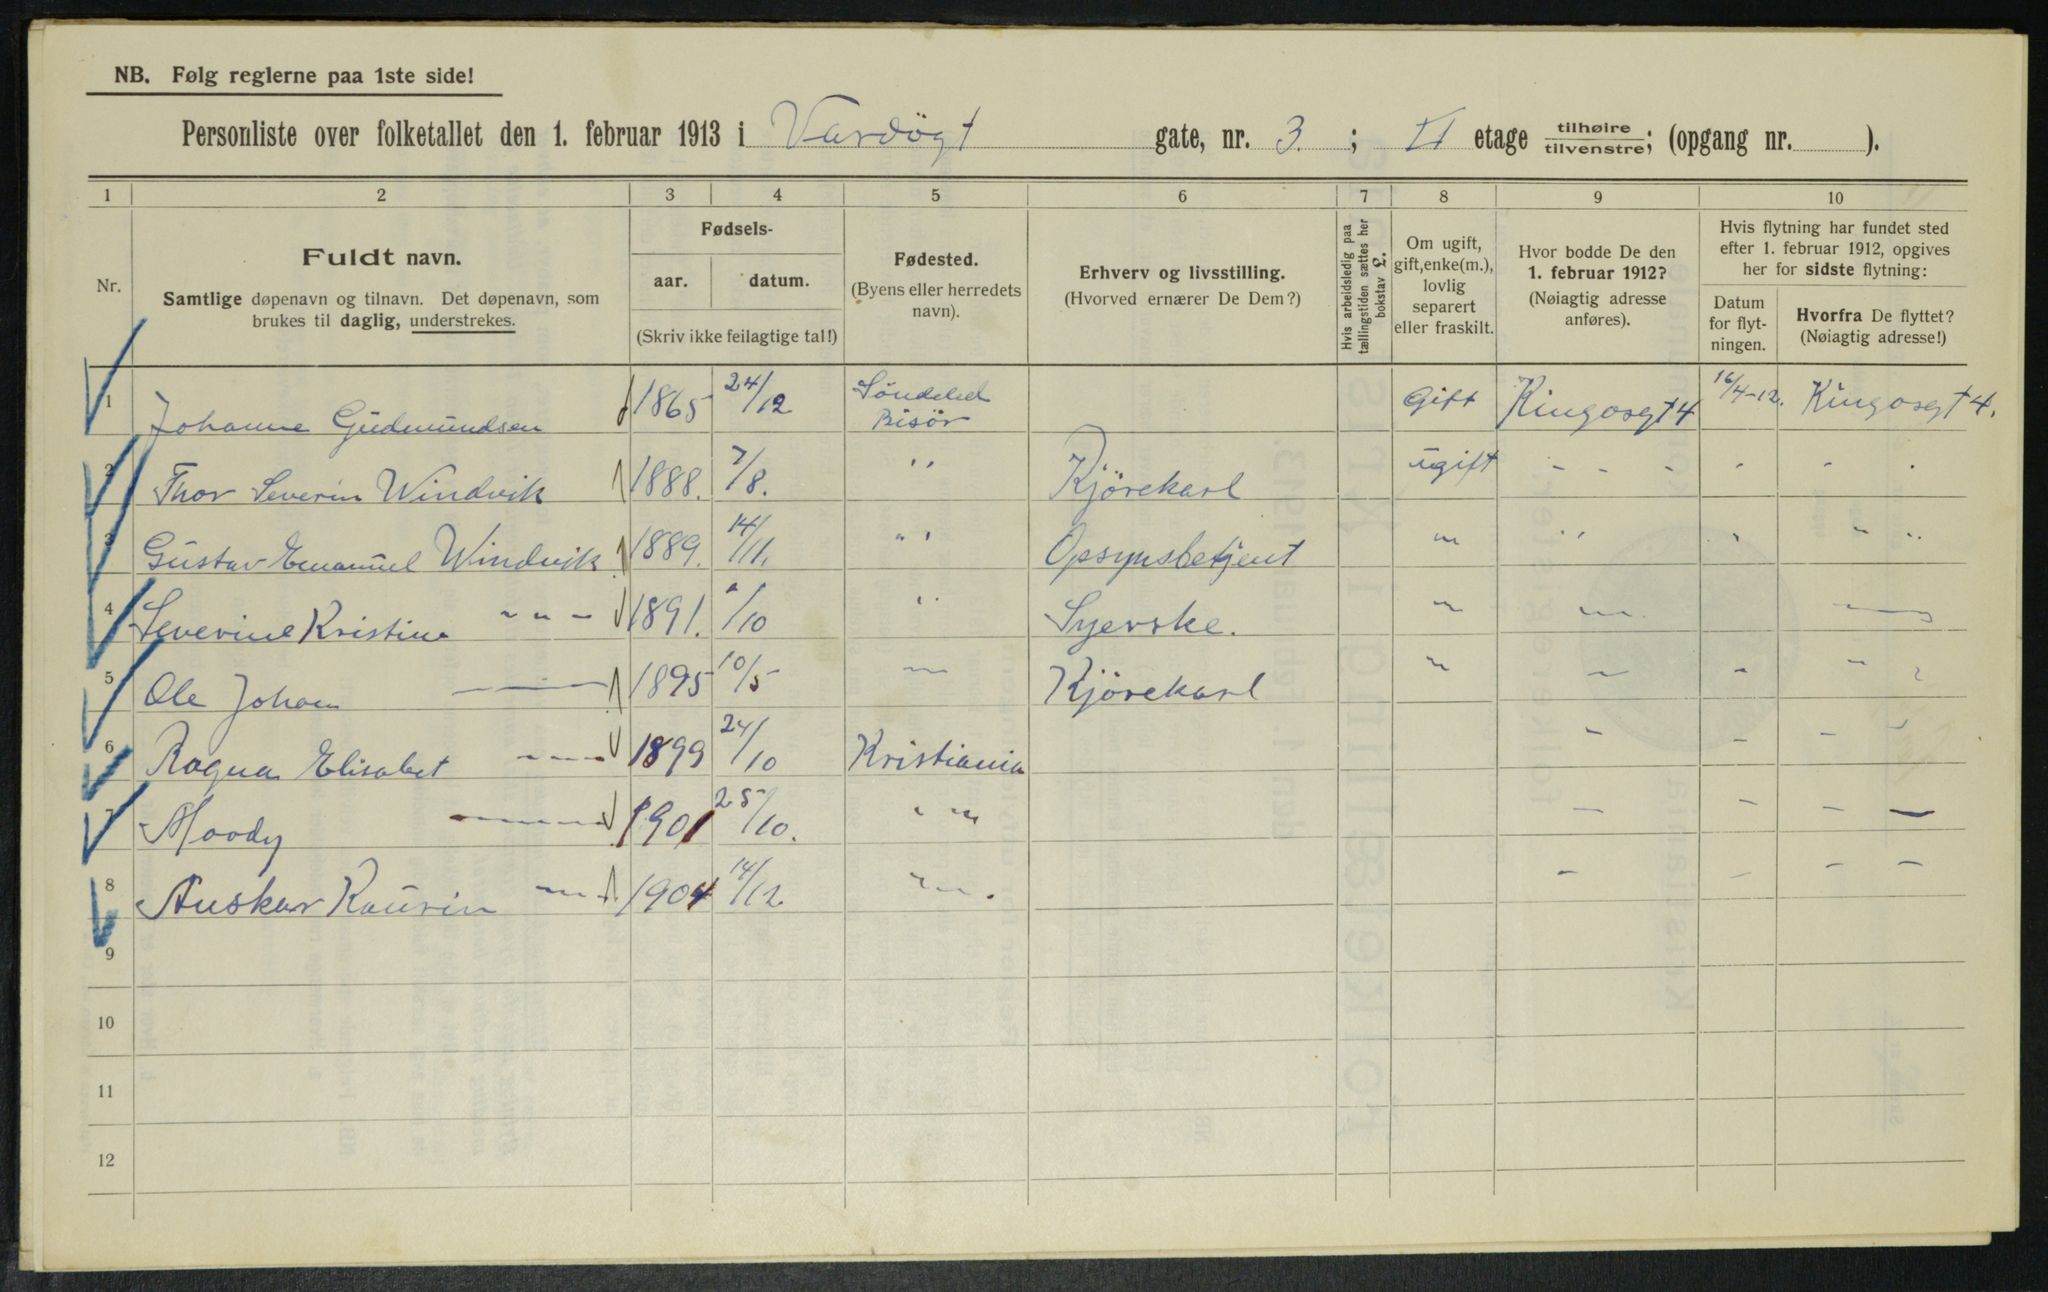 NB. Følg reglerne paa 1ste side!
Personliste over folketallet den 1. februar 1913 i Vardøgt gate, nr. 3. ; II etage tilhøire / tilvenstre; (opgang nr. ).
1 2 3 4 5 6 7 8 9 10
Nr.
Fuldt navn.
Samtlige døpenavn og tilnavn. Det døpenavn, som
brukes til daglig, understrekes.
Fødsels-
aar. datum.
(Skriv ikke feilagtige tal!)
Fødested.
(Byens eller herredets
navn).
Erhverv og livsstilling.
(Hvorved ernærer De Dem?)
Hvis arbeidsledig paa
tællingstiden sættes her
bokstav L.
Om ugift,
gift, enke(m.),
lovlig
separert
eller fraskilt.
Hvor bodde De den
1. februar 1912?
(Nøiagtig adresse
anføres).
Hvis flytning har fundet sted
efter 1. februar 1912, opgives
her for sidste flytning:
Datum
for flyt-
ningen.
Hvorfra De flyttet?
(Nøiagtig adresse!)
1 Johanne Gudmundsen 1865 24/12 Søndeled Risör Gift Kingosgt 4 16/4-12. Kingosgt 4.
2 Thor Severin Windvik 1888. 7/8. " Kjörekarl ugift - - - - - -
3 Gustav Emanuel Windvik 1889. 14/11. " Opsynsbetjent " " " " "
4 Severine Kristine " " " 1891. /10 " Syerske. " " —
5 Ole Johan — 1895 10/5 " Kjörekarl " " - " "
6 Ragna Elisabet — 1899 24/10 Kristiania - - - -
7 Moody — 1901 25/10. " " - - - -
8 Anskar Kaurin — 1904 14/12. " - - - -
9
10
11
12